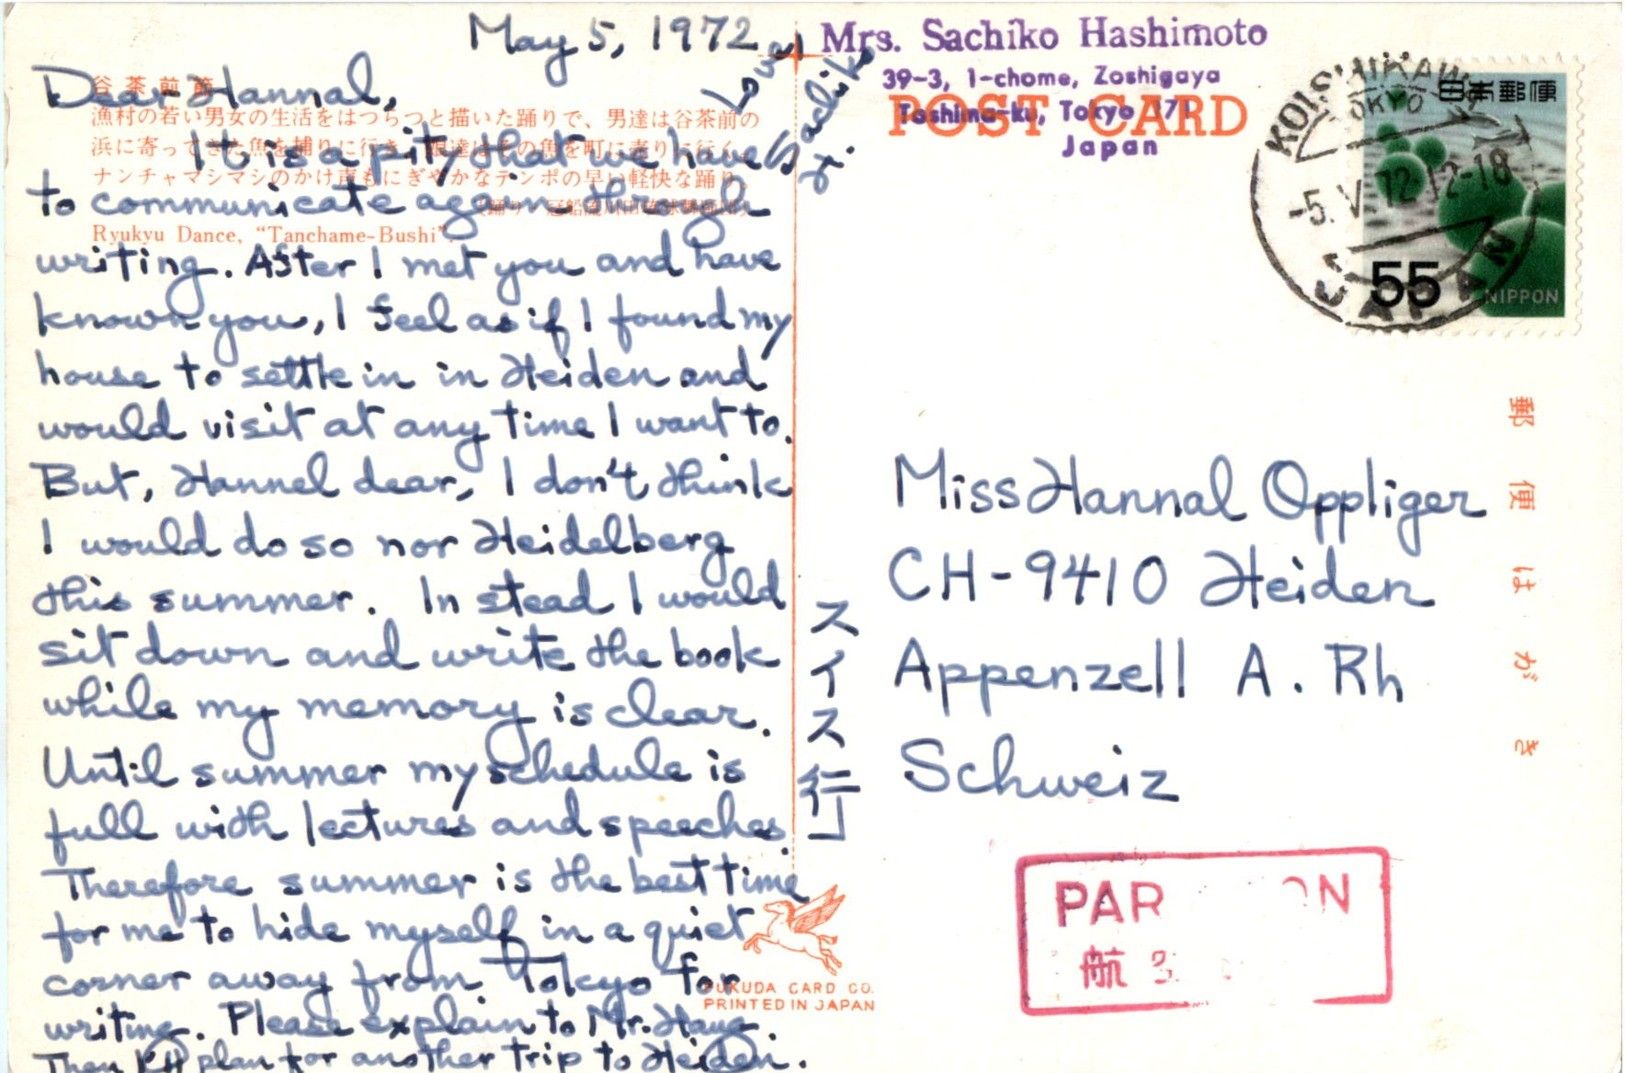 May 5, 1972
Dear Hannal,
It is a pity that we have
to communicate again through
writing. After I met you and have
known you, I feel as if I found my
house to settle in in Heiden and
would visit at any time I want to.
But, Hannel dear, I don't think
I would do so nor Heidelberg
this summer. In stead I would
sit down and write the book
while my memory is clear.
Until summer my schedule is
full with lectures and speeches.
Therefore summer is the best time
for me to hide myself in a quiet
corner away from Tokyo for
writing. Please explain to Mr. Haug.
Then I'll plan for another trip to Heiden.
Love
Sachiko
谷茶前節
漁村の若い男女の生活をはつらつと描いた踊りで、男達は谷茶前の
浜に寄ってきた魚を捕りに行き、娘達はその魚を町に売りに行く。
ナンチャマシマシのかけ声もにぎやかなテンポの早い軽快な踊り。
Ryukyu Dance, "Tanchame-Bushi".
Mrs. Sachiko Hashimoto
39-3, 1-chome, Zoshigaya
Toshima-ku, Tokyo 171
Japan
POST CARD
KOISHIKAWA
TOKYO
-5. V. 72 12-18
JAPAN
日本郵便
55
NIPPON
郵便はがき
スイス行
Miss Hannal Oppliger
CH-9410 Heiden
Appenzell A. Rh
Schweiz
PAR
航
FUKUDA CARD CO.
PRINTED IN JAPAN